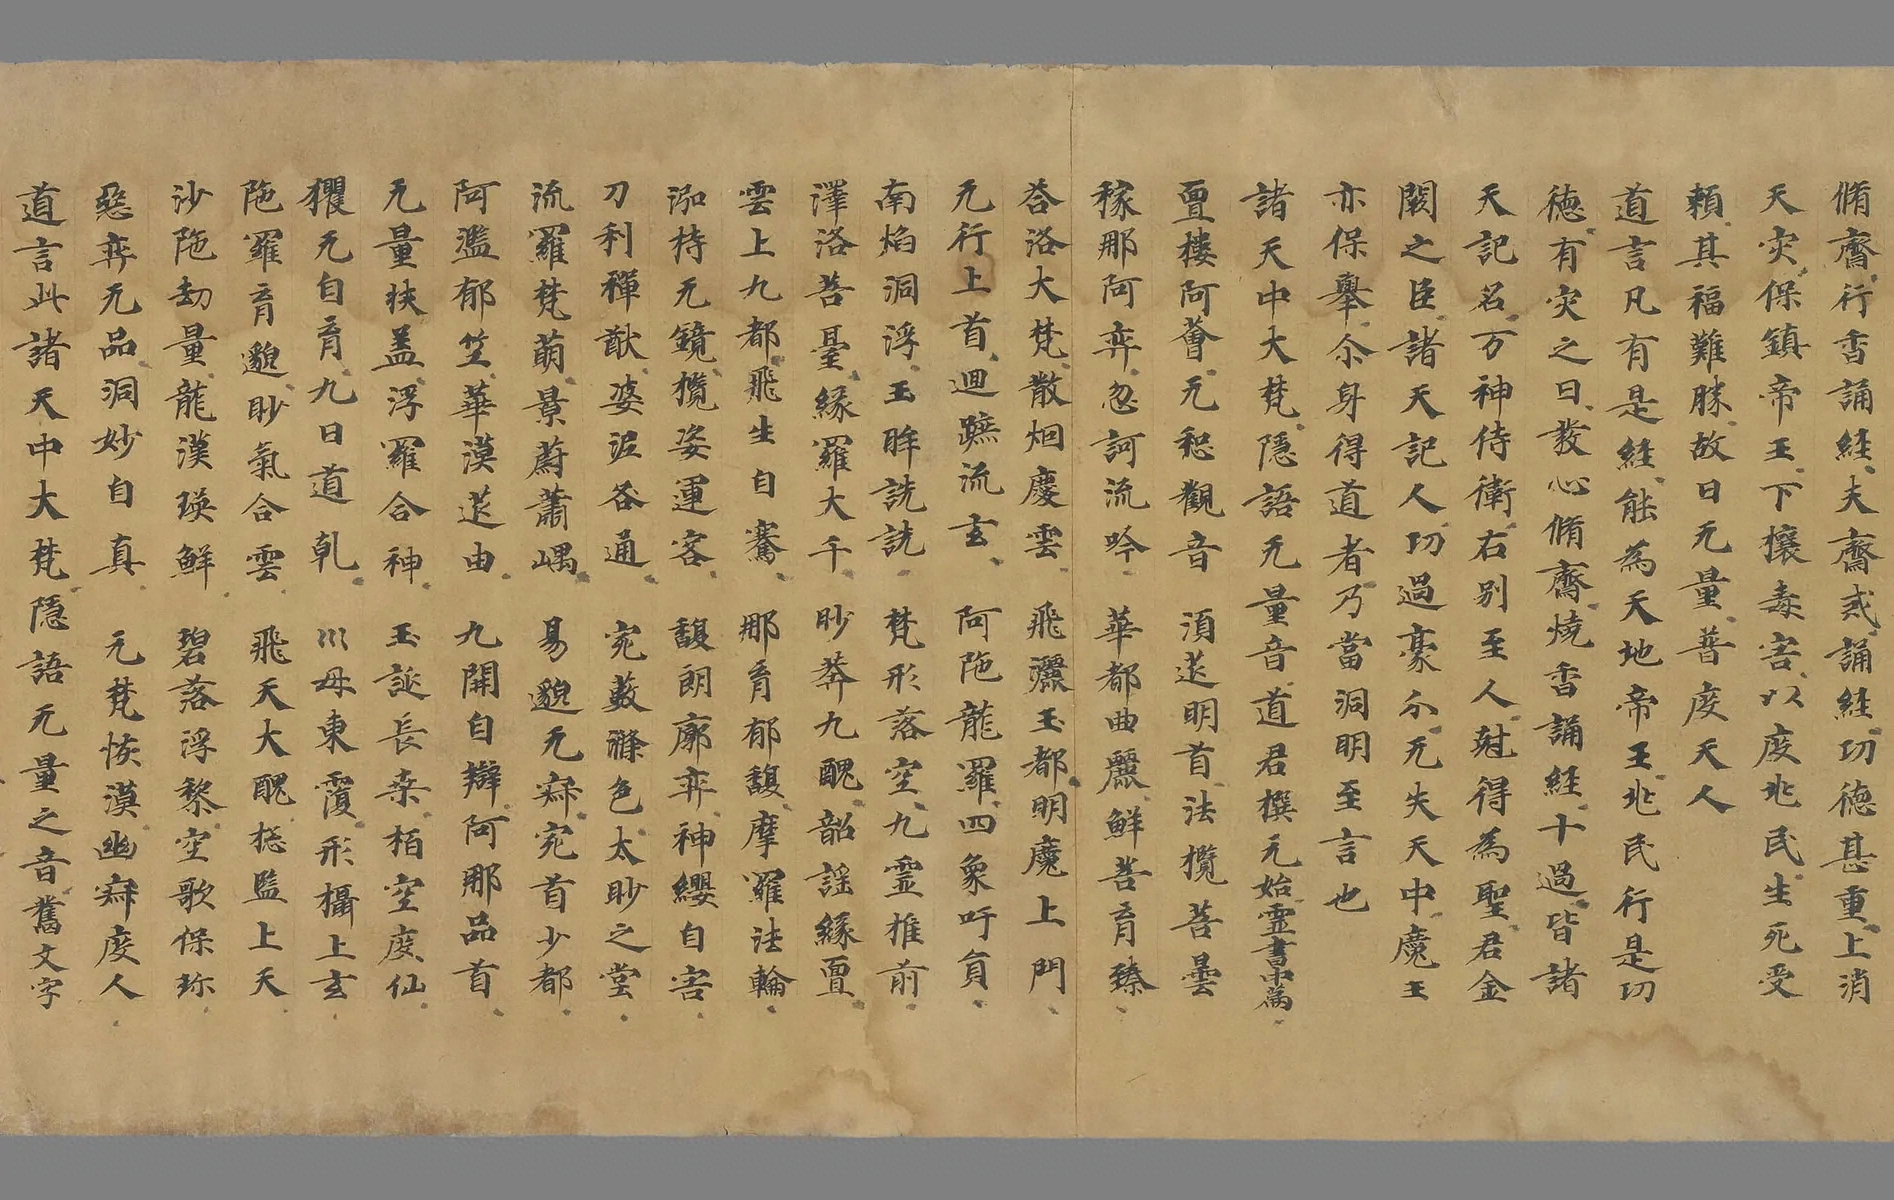 脩齋行香誦経夫齋或誦経功徳甚重上消
天灾保鎮帝王下禳毒害以度兆民生死受
頼其福難勝故曰无量普度天人
道言凡有是経能為天地帝王兆民行是功
徳有灾之日發心脩齋燒香誦経十過皆諸
天記名万神侍衛右別至人尅得為聖君金
闕之臣諸天記人功過豪分无失天中魔王
亦保舉尒身得道者乃當洞明至言也
諸天中大梵隱語无量音道君撰元始霊書中篇
亶樓阿薈无惒觀音 須莚明首法欖菩曇
稼那阿弈忽訶流吟 華都曲麗鮮菩育臻
荅洛大梵散烟慶雲 飛灑玉都明魔上門
无行上首迴蹠流玄 阿陁龍羅四象吁員
南焰洞浮玉眸詵詵 梵形落空九霊推前
澤洛菩臺緣羅大千 眇莽九醜韶謡緣亶
雲上九都飛生自騫 那育郁馥摩羅法輪
泓持无鏡欖姿運容 馥朗廓弈神纓自宮
刀利禪猷婆泥各通 宛藪滌色太眇之堂
流羅梵萌景蔚蕭嵎 易邈无寂宛首少都
阿濫郁竺華漠莚由 九開自辯阿那品首
无量扶蓋浮羅合神 玉誕長桒栢空度仙
玃无自育九日道乹 巛母東覆形攝上玄
陁羅育邈眇氣合雲 飛天大醜揔監上天
沙陁劫量龍漢瑛鮮 碧落浮黎空歌保珎
惡弈无品洞妙自真 元梵恢漠幽寂度人
道言此諸天中大梵隱語无量之音舊文字